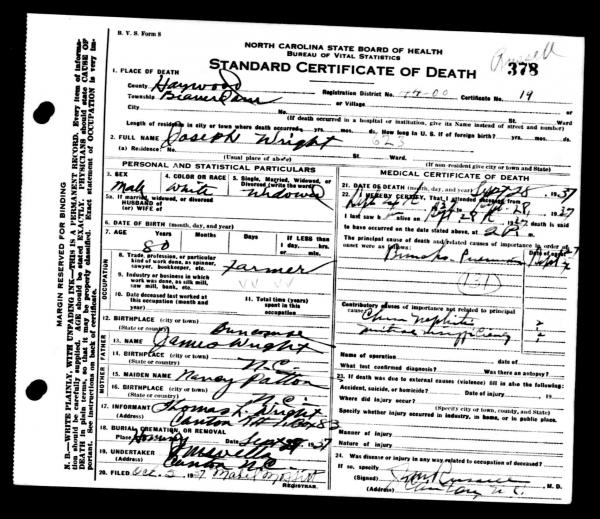 B. V. S. Form 8
NORTH CAROLINA STATE BOARD OF HEALTH
BUREAU OF VITAL STATISTICS
STANDARD CERTIFICATE OF DEATH
Russell
378
1. PLACE OF DEATH
County Haywood
Registration District No. 44-00 Certificate No. 19
Township Beaverdam or Village
City No. St. Ward
(If death occurred in a hospital or institution, give its NAME instead of street and number)
Length of residence in city or town where death occurred yrs. mos. ds. How long in U. S. if of foreign birth? yrs. mos. ds.
2. FULL NAME Joseph Wright
623
(a) Residence. No. St. Ward
(Usual place of abode) (If non-resident give city or town and State)
PERSONAL AND STATISTICAL PARTICULARS
3. SEX
Male
4. COLOR OR RACE
White
5. Single, Married, Widowed, or Divorced (write the word)
Widowed
5a. If married, widowed, or divorced
HUSBAND of
(or) WIFE of
6. DATE OF BIRTH (month, day, and year)
7. AGE Years Months Days If LESS than
80
1 day, hrs.
or min.
OCCUPATION
8. Trade, profession, or particular
kind of work done, as spinner,
sawyer, bookkeeper, etc.
Farmer
9. Industry or business in which
work was done, as silk mill,
saw mill, bank, etc.
10. Date deceased last worked at
this occupation (month and
year)
11. Total time (years)
spent in this
occupation
12. BIRTHPLACE (city or town)
(State or country)
Buncombe
FATHER
13. NAME James Wright
14. BIRTHPLACE (city or town)
(State or country) N.C.
MOTHER
15. MAIDEN NAME Nancy Patton
16. BIRTHPLACE (city or town)
(State or country) N.C.
17. INFORMANT Thomas L. Wright
(Address) Canton
18. BURIAL, CREMATION, OR REMOVAL
Place Hominy Date Sept 29 1937
19. UNDERTAKER
(Address) Canton N.C.
20. FILED Oct. 2 1937
REGISTRAR.
MEDICAL CERTIFICATE OF DEATH
21. DATE OF DEATH (month, day, and year) Sept 28 1937
22. I HEREBY CERTIFY, That I attended deceased from
1937 to Sept 28, 1937
I last saw h alive on Sept 28 1937 death is said
to have occurred on the date stated above, at
The principal cause of death and related causes of importance in order of
onset were as follows:
Date of onset
Broncho Pneumonia
131
Contributory causes of importance not related to principal
cause: Chron nephritis
mitral insufficiency
Name of operation date of
What test confirmed diagnosis? Was there an autopsy?
23. If death was due to external causes (violence) fill in also the following:
Accident, suicide, or homicide? Date of injury 19
Where did injury occur?
(Specify city or town, county, and State)
Specify whether injury occurred in industry, in home, or in public place.
Manner of injury
Nature of injury
24. Was disease or injury in any way related to occupation of deceased?
If so, specify
(Signed) M. D.
(Address) Canton, N.C.
MARGIN RESERVED FOR BINDING
N. B.—WRITE PLAINLY, WITH UNFADING INK—THIS IS A PERMANENT RECORD. Every item of information should be carefully supplied. AGE should be stated EXACTLY. PHYSICIANS should state CAUSE OF DEATH in plain terms, so that it may be properly classified. Exact statement of OCCUPATION is very important. See instructions on back of certificate.